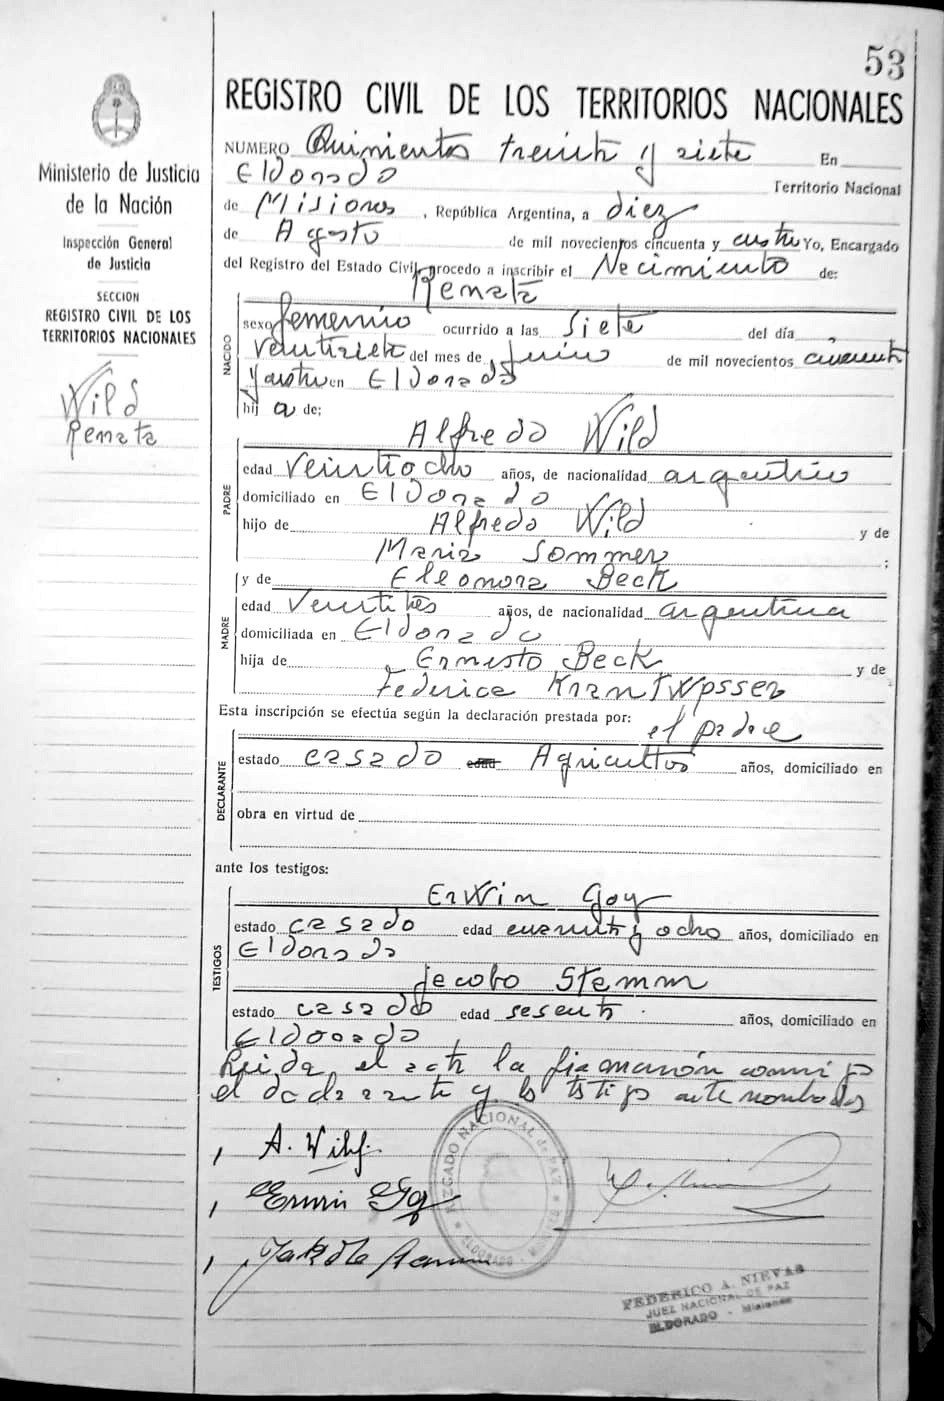 53
REGISTRO CIVIL DE LOS TERRITORIOS NACIONALES
Ministerio de Justicia
de la Nación
Inspección General
de Justicia
SECCION
REGISTRO CIVIL DE LOS
TERRITORIOS NACIONALES
Wild
Renata
NUMERO Quinientos treinta y siete En
Eldorado Territorio Nacional
de Misiones, República Argentina, a diez
de Agosto de mil novecientos cincuenta y cuatro Yo, Encargado
del Registro del Estado Civil, procedo a inscribir el Nacimiento de:
Renata
NACIDO
sexo femenino ocurrido a las Siete del día
veintisiete del mes de Junio de mil novecientos cincuenta
y cuatro en Eldorado
hij a de:
Alfredo Wild
PADRE
edad Veintiocho años, de nacionalidad argentino
domiciliado en Eldorado
hijo de Alfredo Wild y de
Maria Sommer ;
y de Eleonora Beck
MADRE
edad Veintitres años, de nacionalidad argentina
domiciliada en Eldorado
hija de Ernesto Beck y de
Federica
Esta inscripción se efectúa según la declaración prestada por: el padre
DECLARANTE
estado casado edad Agricultor años, domiciliado en
obra en virtud de
ante los testigos:
TESTIGOS
Erwin Goy
estado casado edad cuarenta y ocho años, domiciliado en
Eldorado
Jacobo Stamm
estado casado edad sesenta años, domiciliado en
Eldorado
Leida el acta la firmaron conmigo
el declarante y los testigos antenombrados
A. Wild
Erwin Goy
Jakob Stamm
JUZGADO NACIONAL de PAZ
ELDORADO
FEDERICO A. NIEVAS
JUEZ NACIONAL DE PAZ
ELDORADO - Misiones